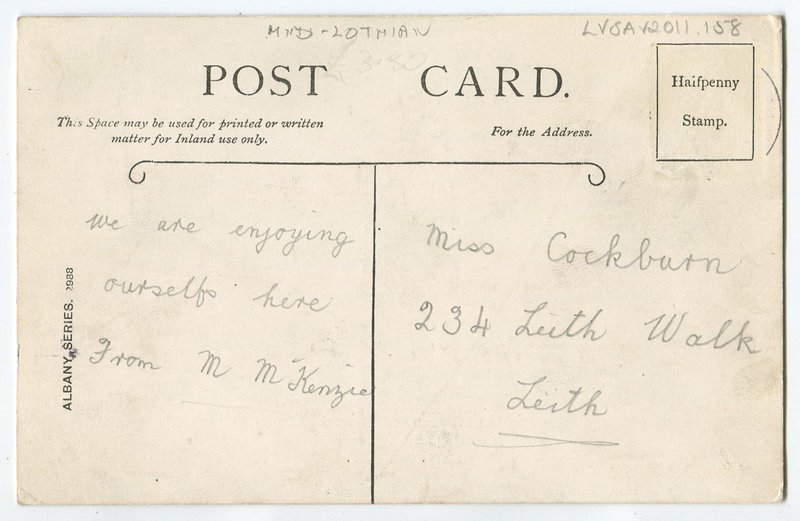 MID-LOTHIAN
LVSAV2011.158
POST CARD.
Halfpenny
Stamp.
This Space may be used for printed or written
matter for Inland use only.
For the Address.
we are enjoying
ourselfs here
From M McKenzie
Miss Cockburn
234 Leith Walk
Leith
ALBANY SERIES. 2988